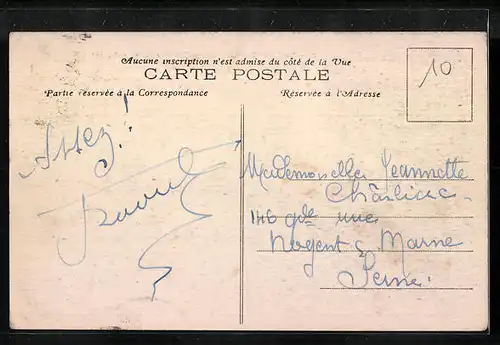 Aucune inscription n'est admise du côté de la Vue
CARTE POSTALE
Partie réservée à la Correspondance
Réservée à l'Adresse
10
Assez!
Mademoiselle Jeannette
146 gde rue
Nogent s Marne
Seine